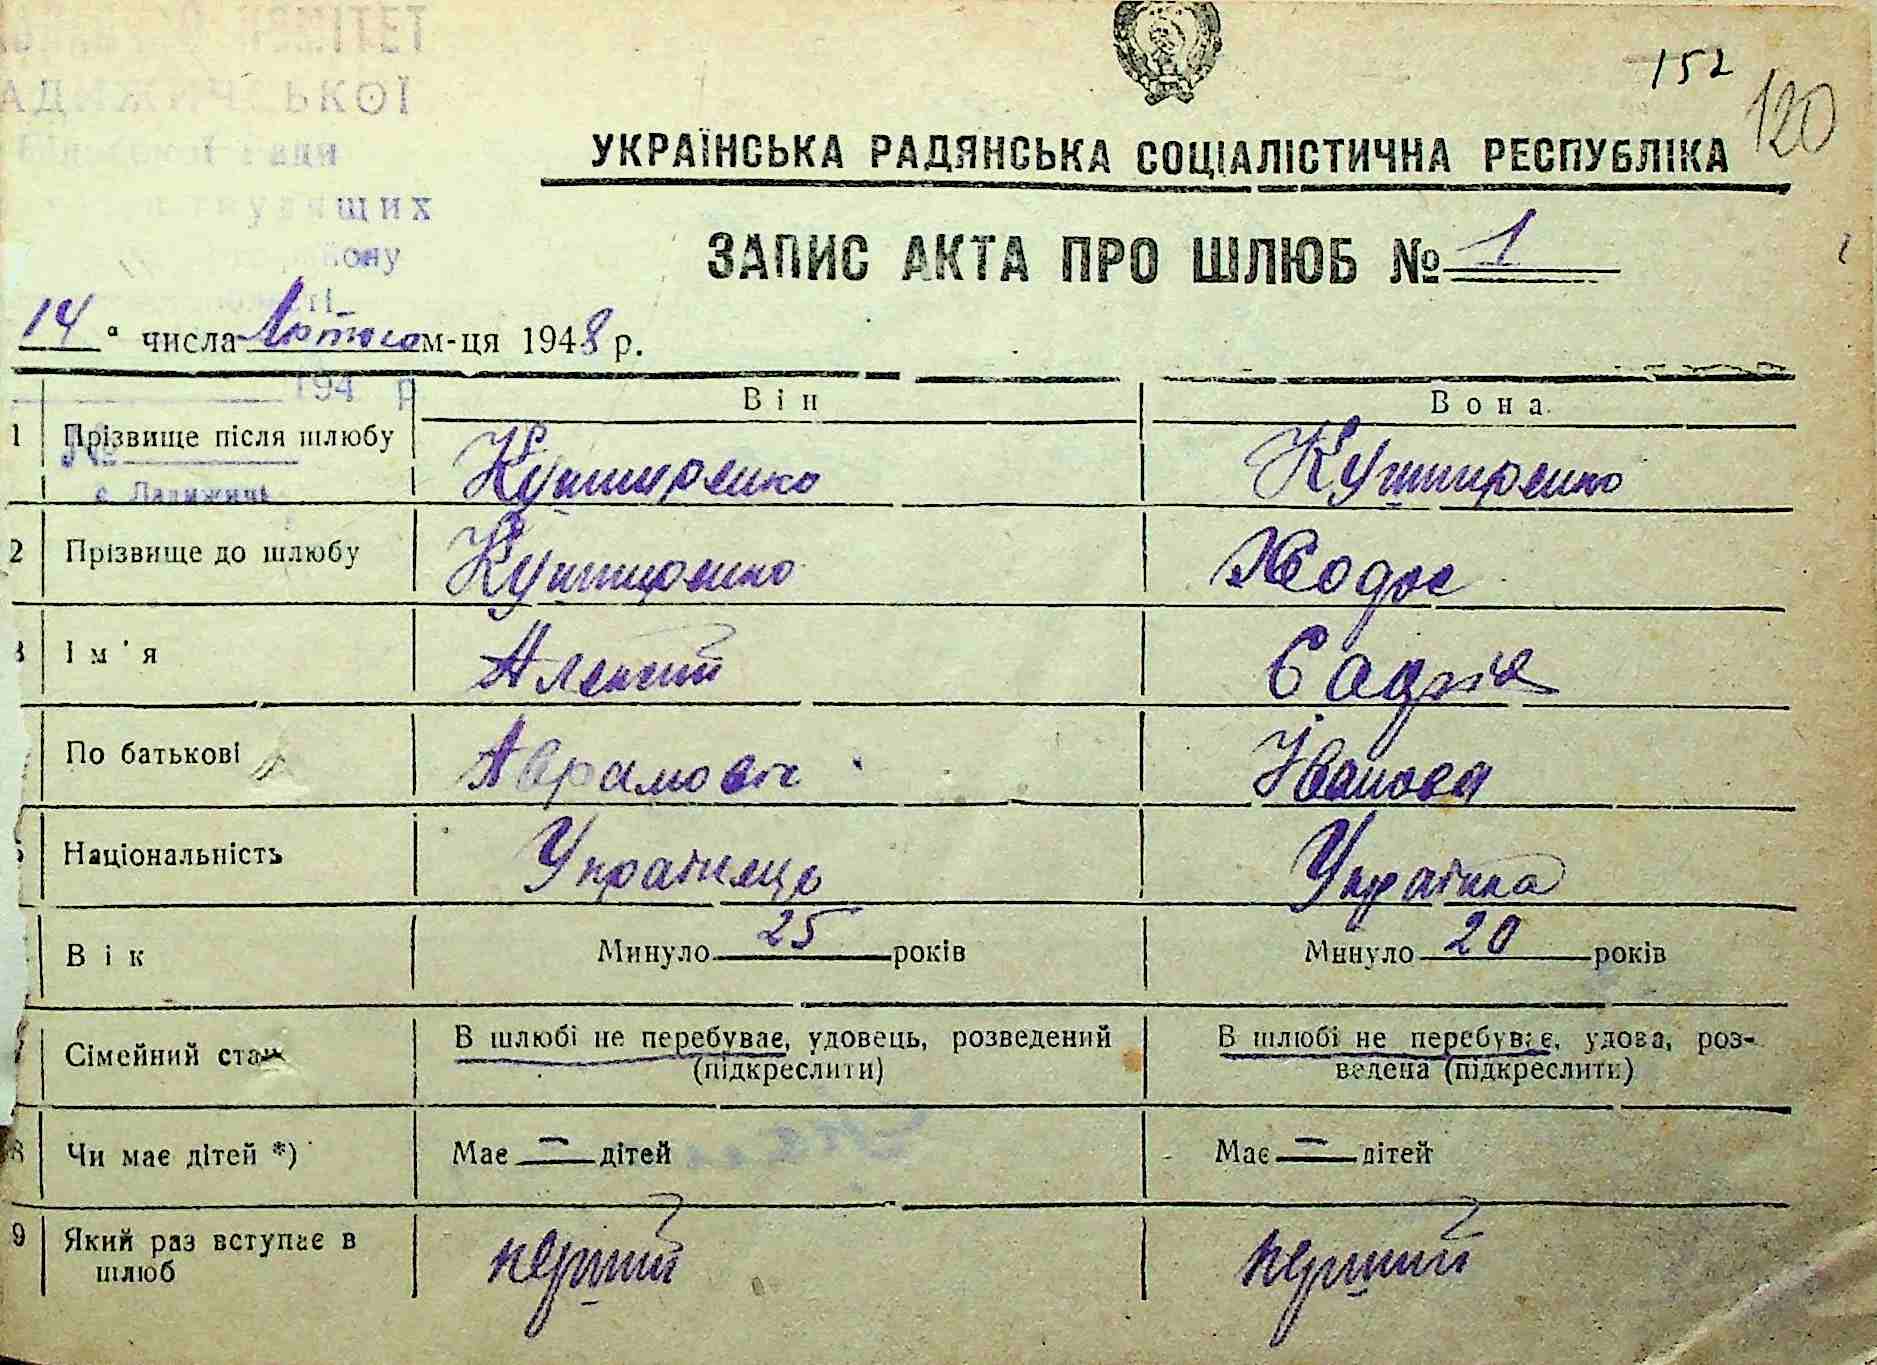 КОМІТЕТ
ЛАДИЖИЧСЬКОЇ
152
120
УКРАЇНСЬКА РАДЯНСЬКА СОЦІАЛІСТИЧНА РЕСПУБЛІКА
ЗАПИС АКТА ПРО ШЛЮБ № 1
14 а числа Лютого м-ця 1948 р.
194 р
Він Вона
1 Прізвище після шлюбу Кушниренко Кушниренко
№
с. Ладижичі
2 Прізвище до шлюбу Кушниренко Ходос
3 Ім'я Алексий
По батькові Аврамовіч Івановна
Національність Українець Українка
Вік Минуло 25 років Минуло 20 років
Сімейний стан В шлюбі не перебуває, удовець, розведений (підкреслити) В шлюбі не перебуває, удова, роз-
ведена (підкреслити)
8 Чи має дітей *) Має — дітей Має — дітей
9 Який раз вступає в шлюб перший перший